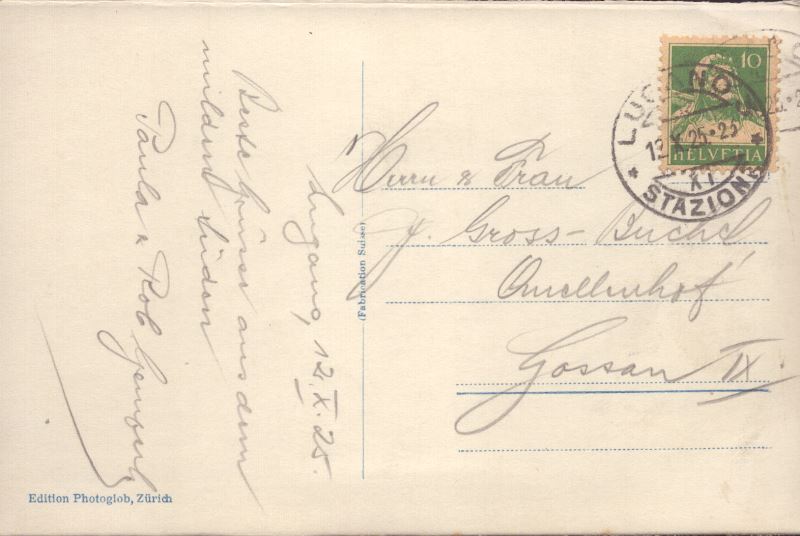 Lugano, 12.X.25.
Beste Grüsse aus dem
milden Süden
Paula & Rob
Herrn & Frau
J. Gross-Büchel
Quellenhof
Gossau
(Fabrication Suisse)
Edition Photoglob, Zürich
10
HELVETIA
LUGANO
12.X.25
XI
* STAZIONE *